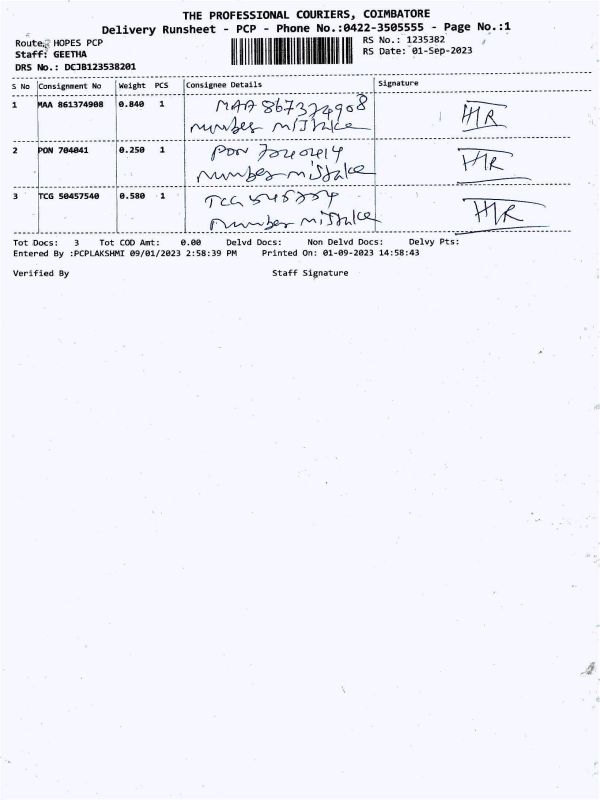 THE PROFESSIONAL COURIERS, COIMBATORE
Delivery Runsheet - PCP - Phone No.:0422-3505555 - Page No.:1
Route: HOPES PCP
RS No.: 1235382
Staff: GEETHA
RS Date: 01-Sep-2023
DRS No.: DCJB123538201
S No Consignment No Weight PCS Consignee Details Signature
1 MAA 861374908 0.840 1 MAA 867374908 HR
number mistake
2 PON 704041 0.250 1 PON HR
number mistake
3 TCG 50457540 0.580 1 TCG HR
number mistake
Tot Docs: 3 Tot COD Amt: 0.00 Delvd Docs: Non Delvd Docs: Delvy Pts:
Entered By :PCPLAKSHMI 09/01/2023 2:58:39 PM Printed On: 01-09-2023 14:58:43
Verified By Staff Signature